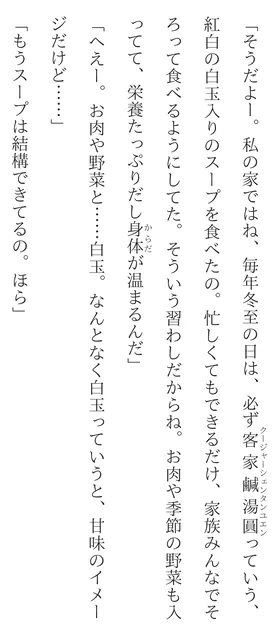 「そうだよー。私の家ではね、毎年冬至の日は、必ず客家鹹湯圓っていう、
紅白の白玉入りのスープを食べたの。忙しくてもできるだけ、家族みんなでそ
ろって食べるようにしてた。そういう習わしだからね。お肉や季節の野菜も入
ってて、栄養たっぷりだし身体が温まるんだ」
「へえー。お肉や野菜と……白玉。なんとなく白玉っていうと、甘味のイメー
ジだけど……」
「もうスープは結構できてるの。ほら」